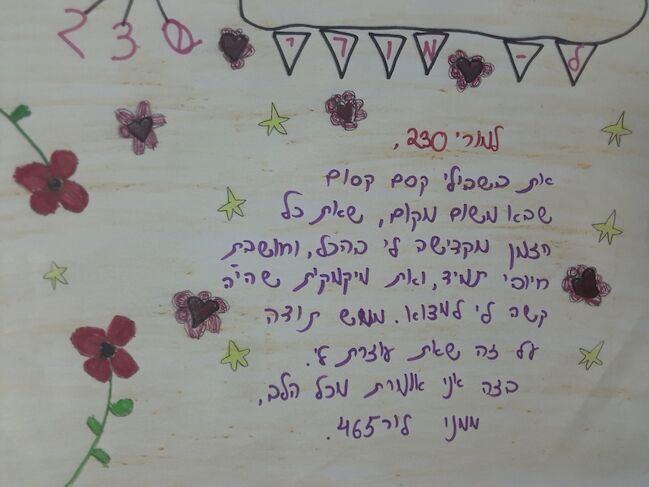 ל-מורי
230
למורי 230,
את בשבילי קסם קסום
שבא משום מקום, שאת כל
הזמן מקדישה לי בהכל, וחושבת
חיובי תמיד, ואת מיקמקית שהיה
קשה לי למצוא. ממש תודה
על זה שאת עוזרת לי.
בזה אני אומרת מכל הלב,
ממני ליור465.